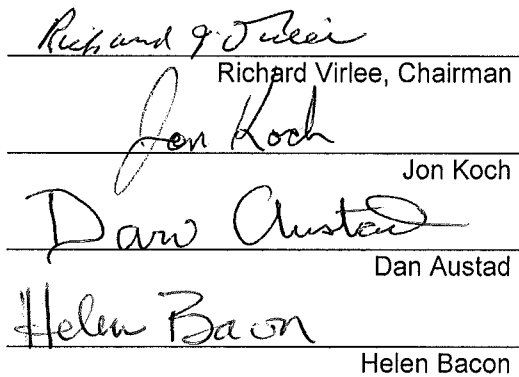 Richard J. Virlee
Richard Virlee, Chairman
Jon Koch
Jon Koch
Dan Austad
Dan Austad
Helen Bacon
Helen Bacon